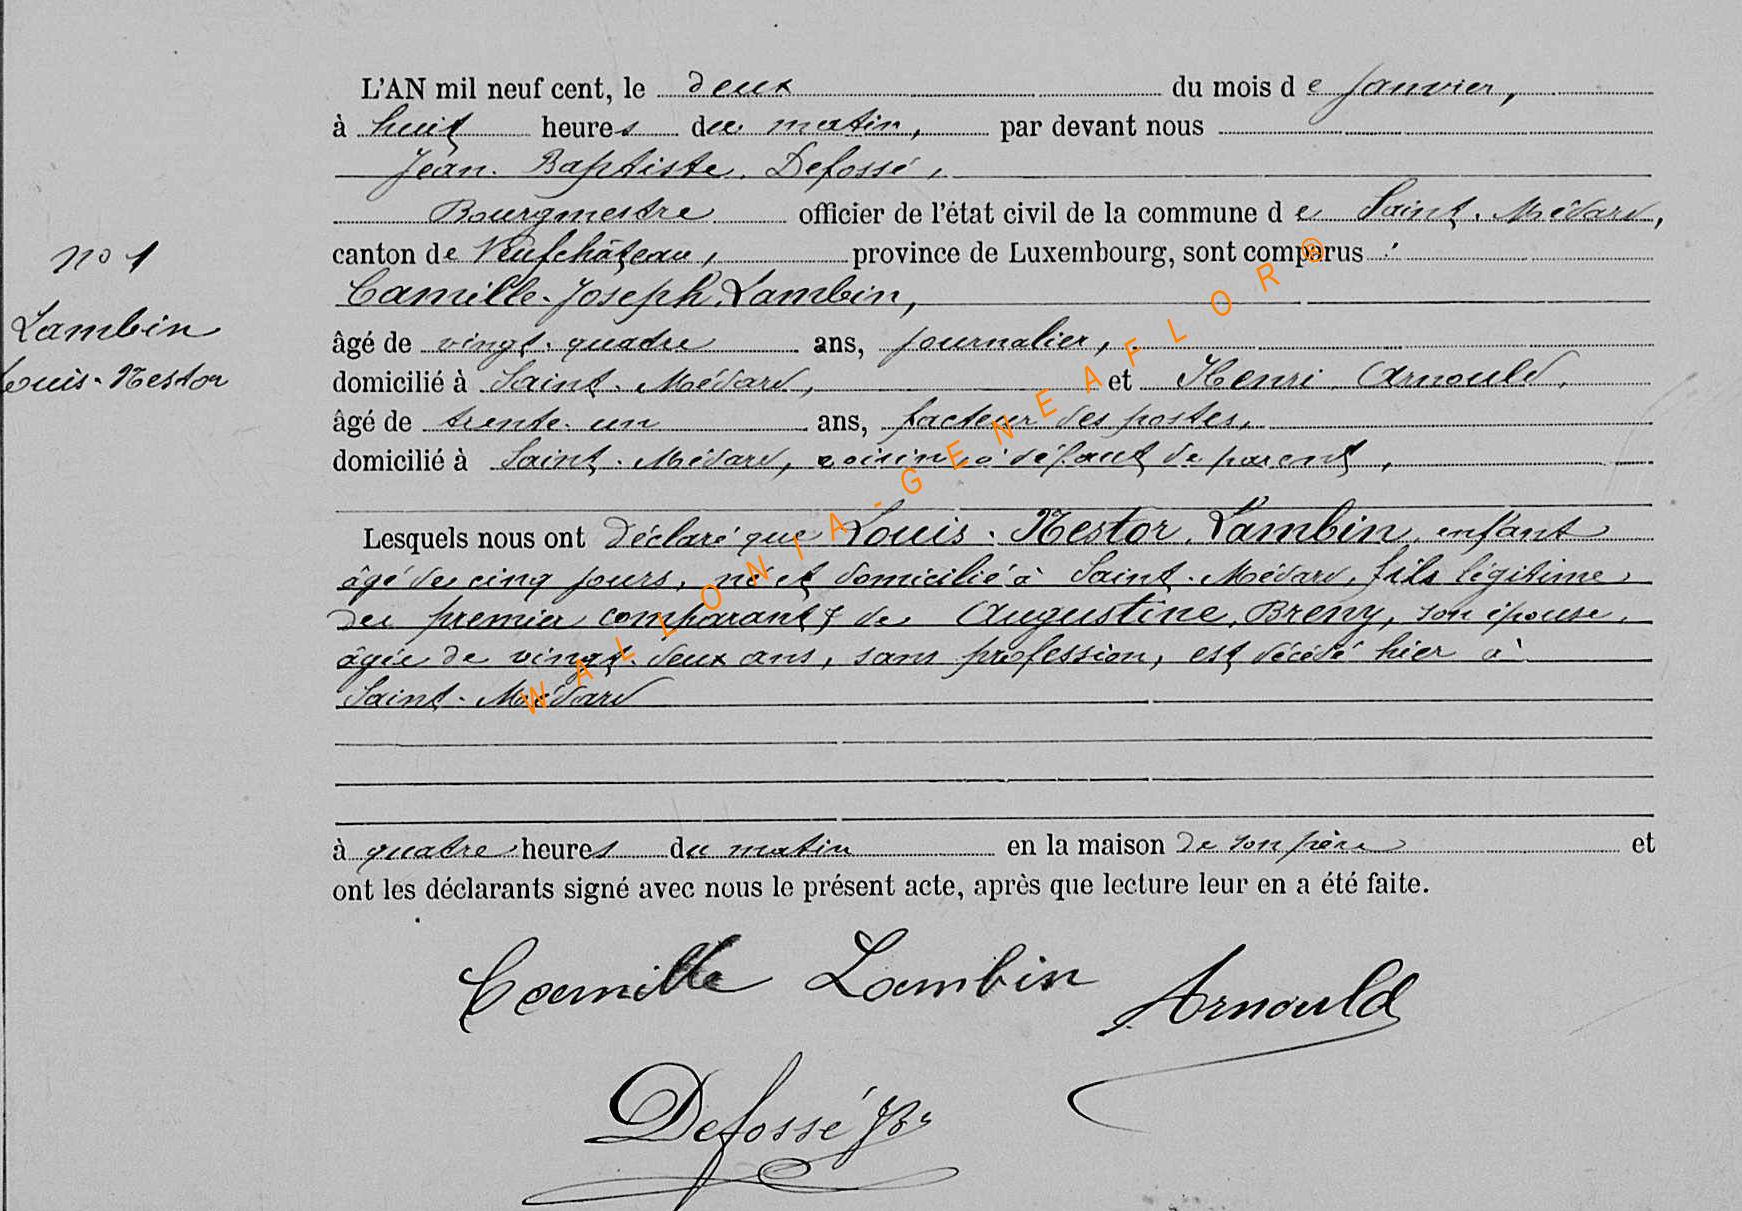 L'AN mil neuf cent, le deux du mois de janvier,
à huit heures du matin, par devant nous
Jean-Baptiste Defossé,
Bourgmestre officier de l'état civil de la commune de Saint-Médard,
canton de Neufchâteau, province de Luxembourg, sont comparus :
Camille-Joseph Lambin,
âgé de vingt-quatre ans, journalier,
domicilié à Saint-Médard, et Henri Arnould,
âgé de trente-un ans, facteur des postes,
domicilié à Saint-Médard, voisin à défaut de parent,
Lesquels nous ont déclaré que Louis-Nestor Lambin, enfant
âgé de cinq jours, né et domicilié à Saint-Médard, fils légitime
du premier comparant & de Augustine Breny, son épouse,
âgée de vingt-deux ans, sans profession, est décédé hier à
Saint-Médard
à quatre heures du matin en la maison de son père et
ont les déclarants signé avec nous le présent acte, après que lecture leur en a été faite.
Camille Lambin Arnould
Defossé JBte
no 1
Lambin
Louis-Nestor
WALLONIA-GENEAFLOR®